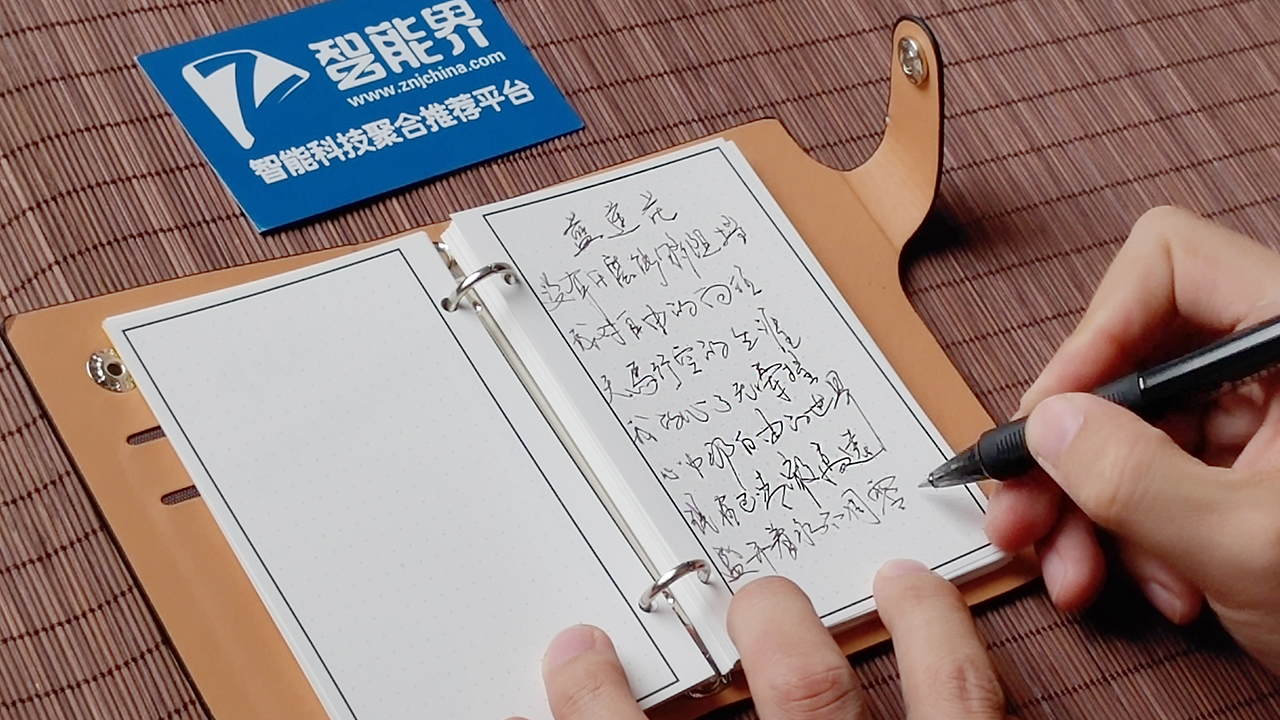 智能界
www.znjchina.com
智能科技聚合推荐平台
蓝莲花
没有什么能够阻挡
对自由的向往
天马行空的生涯
的心了无牵挂
心中那自由的世界
高远
盛开着永不凋零